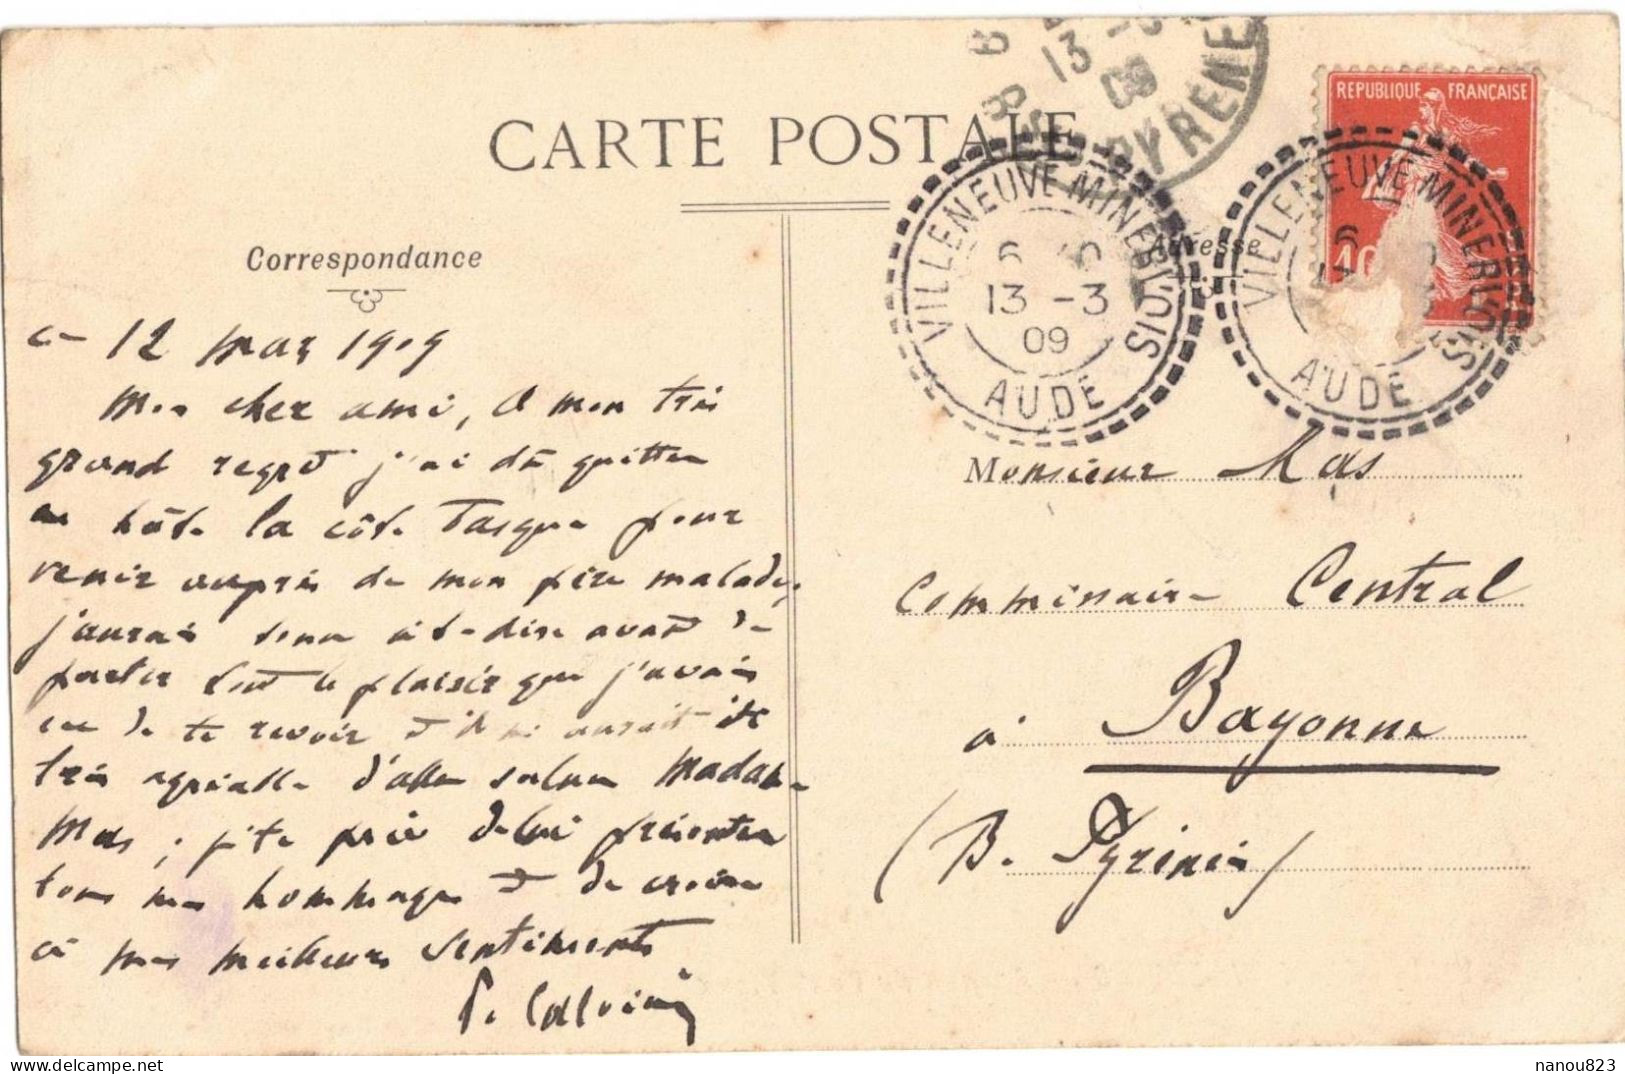 CARTE POSTALE
Correspondance
Adresse
REPUBLIQUE FRANÇAISE
10
VILLENEUVE MINERVOIS
13 -3
09
AUDE
VILLENEUVE MINERVOIS
AUDE
13
09
PYRENE
ce 12 mars 1909
Mon cher ami, à mon très
grand regret j'ai dû quitter
en hâte la côte Basque pour
venir auprès de mon père malade,
j'aurais tenu à te dire avant de
partir tout le plaisir que j'avais
eu de te revoir et il m'aurait été
très agréable d'aller saluer Madame
Mas ; je te prie de lui présenter
tous mes hommages et de croire
à mes meilleurs sentiments
P. Calvi
Monsieur Mas
Commissaire Central
à Bayonne
(B. Pyrénées)
nanou823